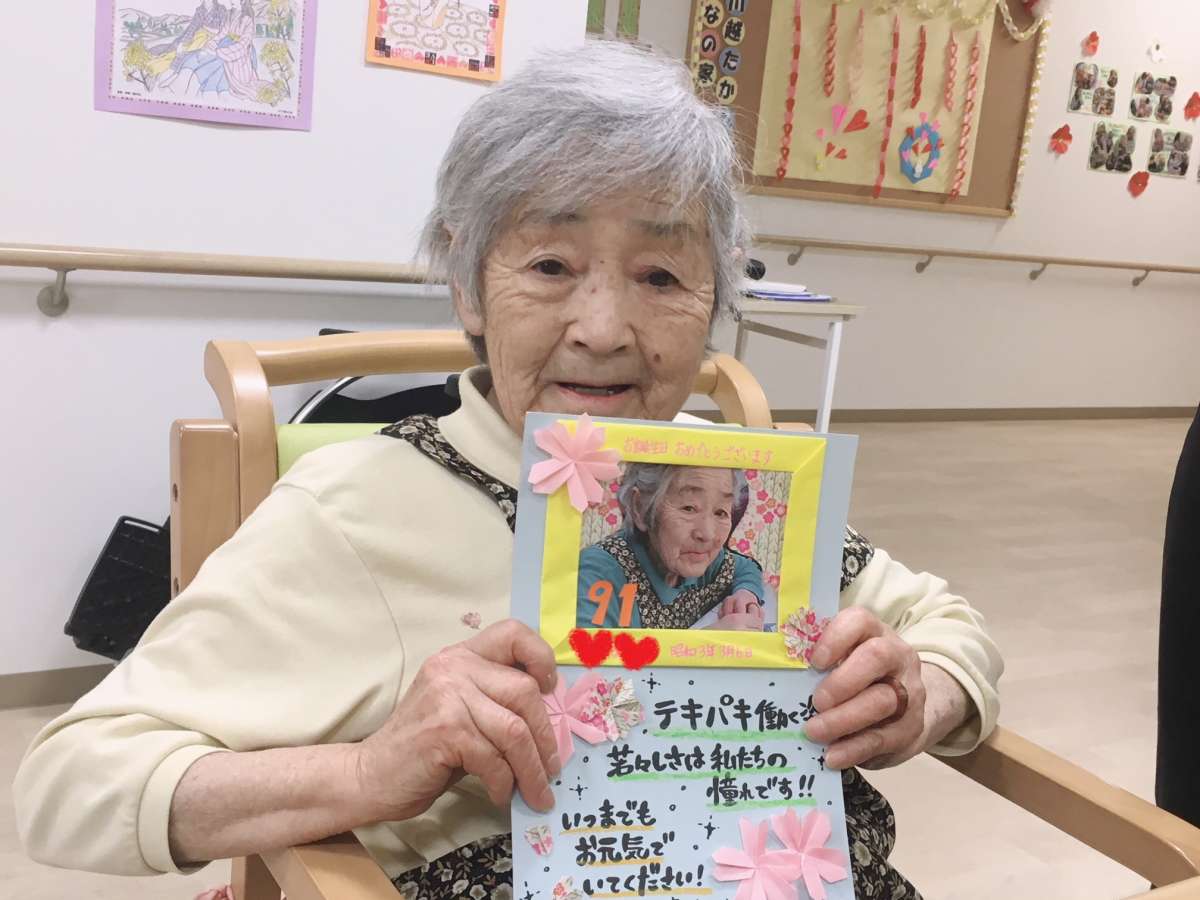 川越たか
なの家
お誕生日 おめでとうございます
91
昭和3年3月6日
テキパキ働く姿
若々しさは 私たちの
憧れです!!
いつまでも
お元気で
いてください!